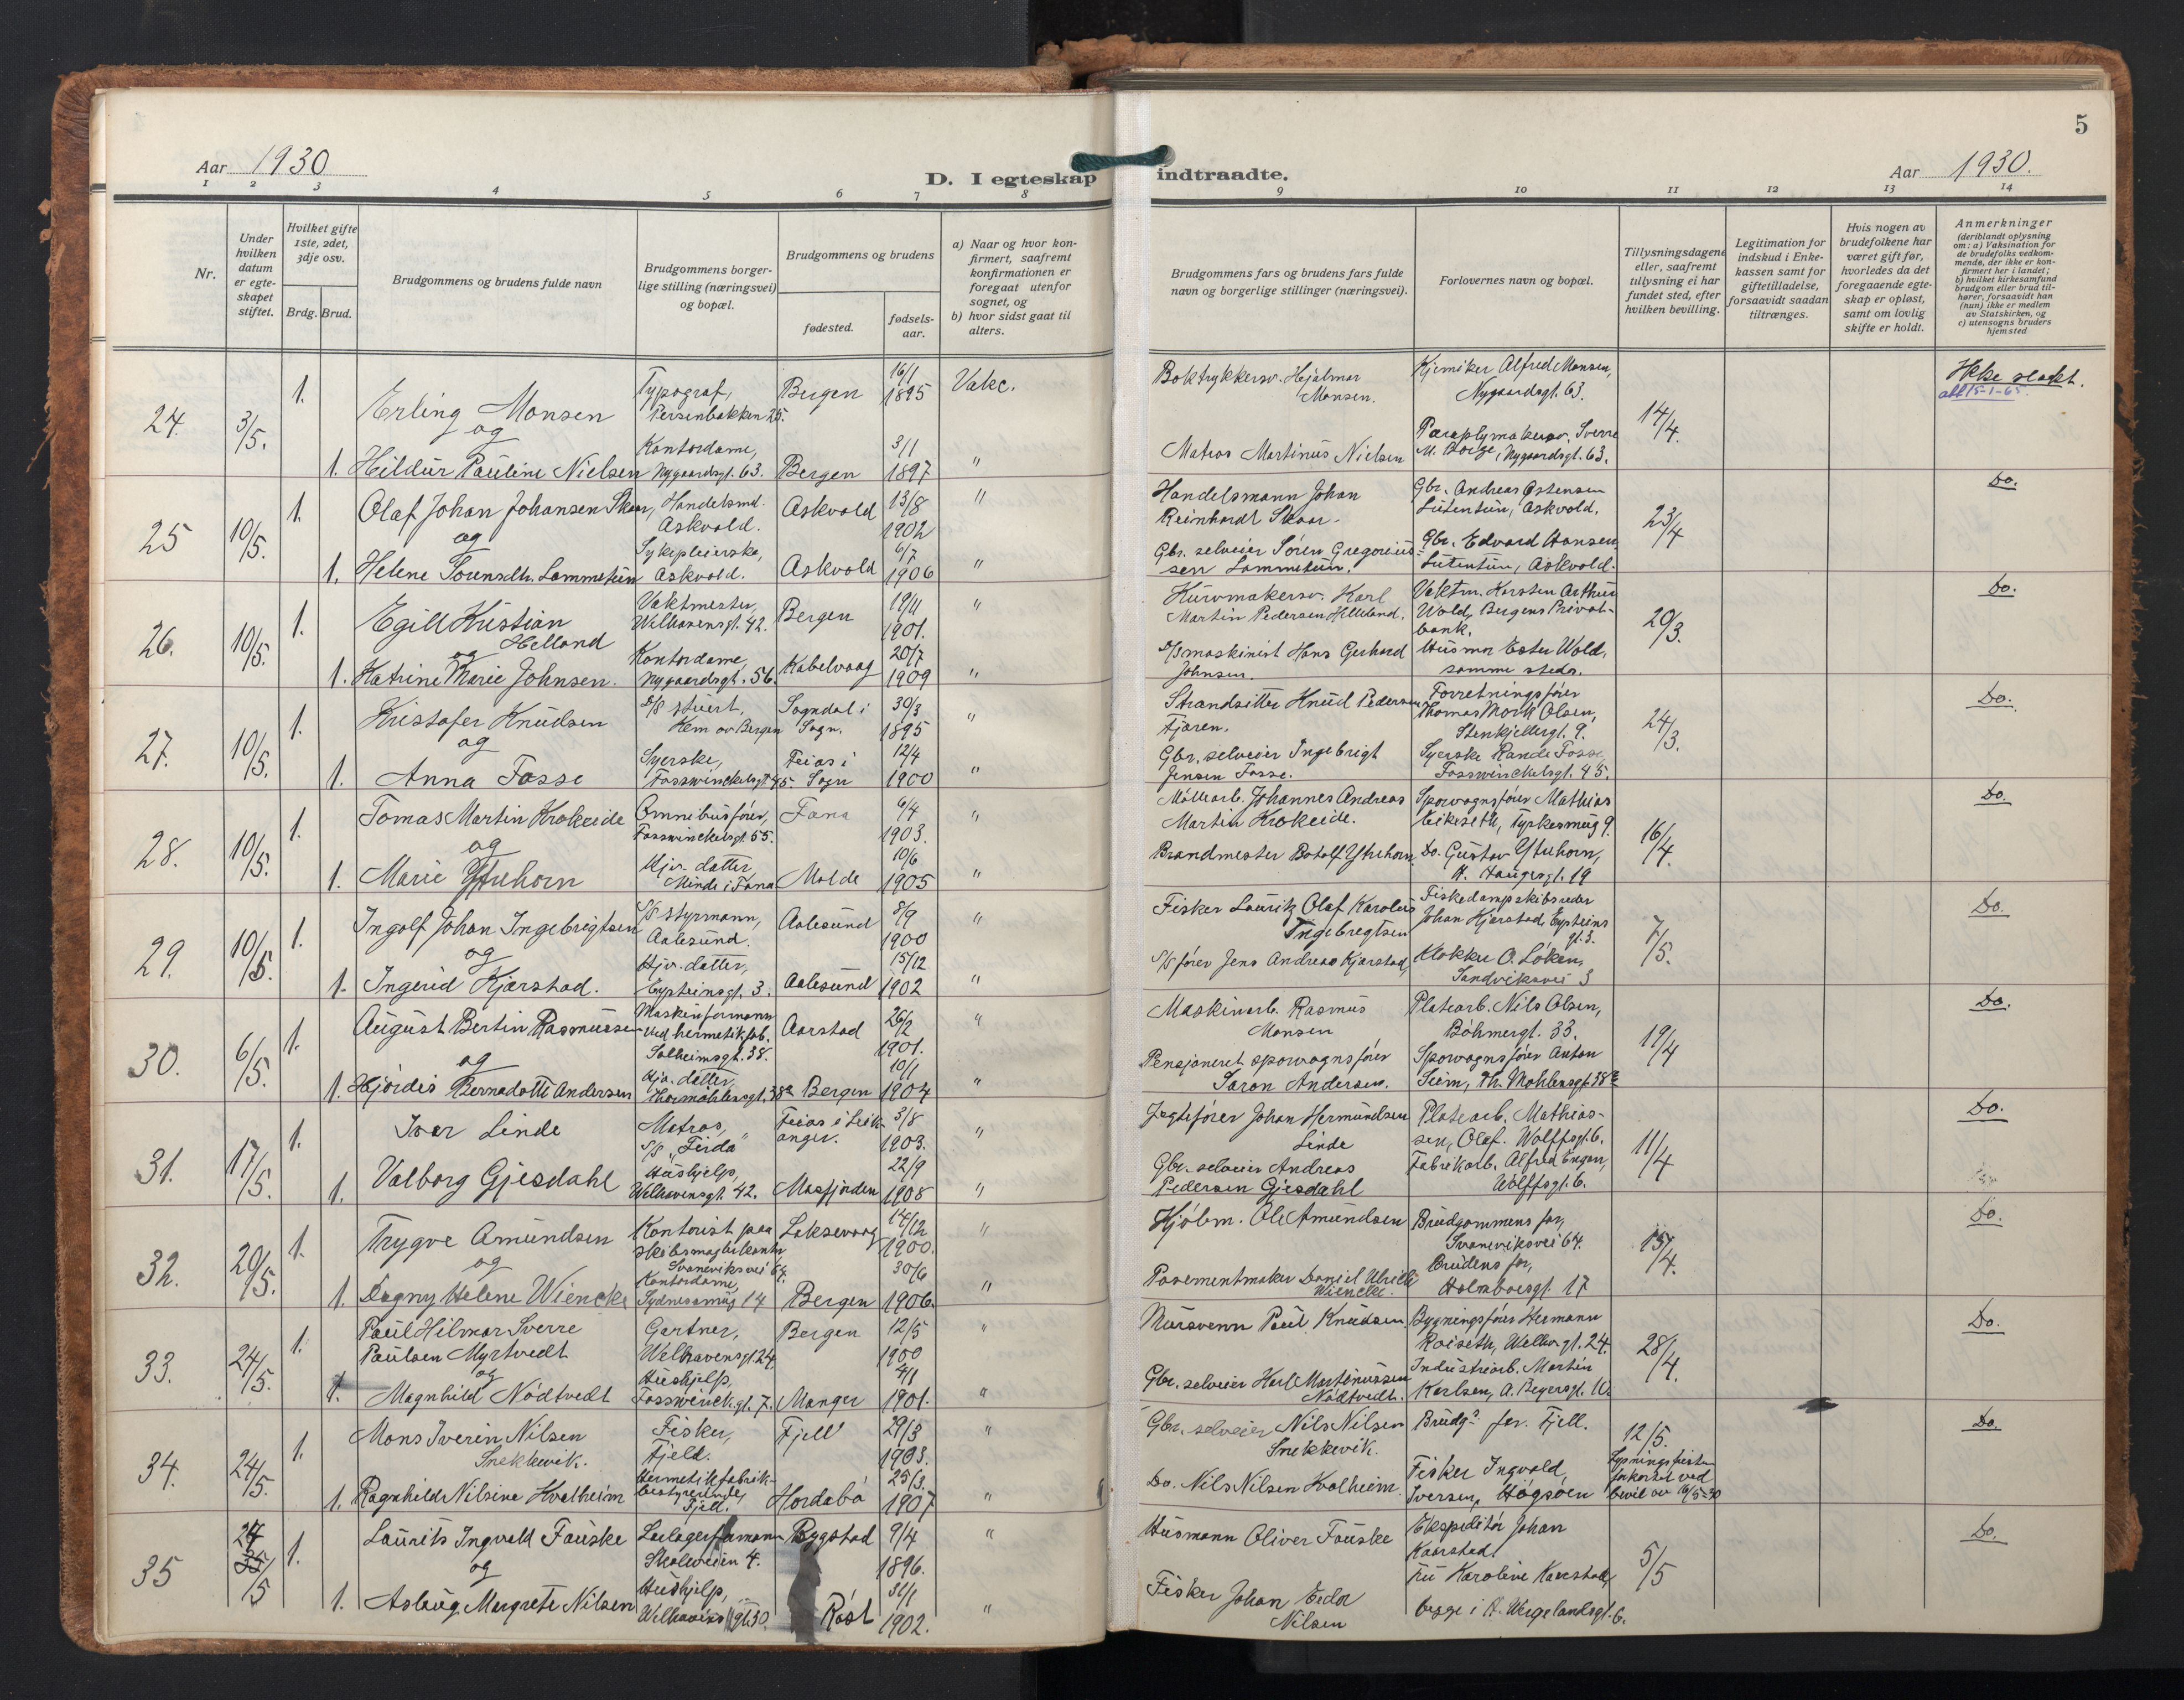 5
Aar 1930
D. I egteskap indtraadte.
Aar 1930.
1 2 3 4 5 6 7 8 9 10 11 12 13 14
Nr.
Under hvilken datum er egte-skapet stiftet.
Hvilket gifte 1ste, 2det, 3dje osv.
Brdg. Brud.
Brudgommens og brudens fulde navn
Brudgommens borger-
lige stilling (næringsvei)
og bopæl.
Brudgommens og brudens
fødested.
fødsels-
aar.
a) Naar og hvor kon-
firmert, saafremt
konfirmationen er
foregaat utenfor
sognet, og
b) hvor sidst gaat til
alters.
Brudgommens fars og brudens fars fulde
navn og borgerlige stillinger (næringsvei).
Forlovernes navn og bopæl.
Tillysningsdagene
eller, saafremt
tillysning ei har
fundet sted, efter
hvilken bevilling.
Legitimation for
indskud i Enke-
kassen samt for
giftetilladelse,
forsaavidt saadan
tiltrænges.
Hvis nogen av
brudefolkene har
været gift før,
hvorledes da det
foregaaende egte-
skap er opløst,
samt om lovlig
skifte er holdt.
Anmerkninger
(deriblandt oplysning
om: a) Vaksination for
de brudefolks vedkom-
mende, der ikke er kon-
firmert her i landet;
b) hvilket kirkesamfund
brudgom eller brud til-
hører, forsaavidt han
(hun) ikke er medlem
av Statskirken, og
c) utensogns bruders
hjemsted
24. 3/5. 1. Erling Monsen
og
Typograf,
Persenbakken 25.
Bergen 16/1 1895 Vakc.
Boktrykkersv. Hjalmar
Monsen.
Kjemiker Alfred Monsen,
Nygaardsgt. 63.
14/4.
Ikke slækt.
1. Hildur Pauline Nielsen
Kontordame,
Nygaardsgt. 63. Bergen 3/1 1897 "
Matros Martinus Nielsen
Paraplymakersv. Sverre
M. Borge, Nygaardsgt. 63.
25 10/5. 1. Olaf Johan Johansen Skaar,
og
Handelsmd.
Askvold. Askvold 13/8 1902 "
Handelsmann Johan
Reinhardt Skaar.
Gbr. Andreas Østensen
Lutentun, Askvold.
23/4
Do.
1. Helene Sørensdtr. Lammetun
Sykepleierske,
Askvold. Askvold 6/7 1906 "
Gbr. selveier Søren Gregorius-
sen Lammetun.
Gbr. Edvard Hansen
Lutentun, Askvold.
26. 10/5. 1. Egill Kristian
Helland
og
Vaktmester,
Welhavensgt. 42. Bergen 19/11 1901. "
Kurvmakersv. Karl
Martin Pedersen Helleland.
Vaktm. Karsten Arthur
Wold, Bergens Privat-
bank.
20/3.
Do.
1. Katrine Marie Johnsen.
Kontordame,
Nygaardsgt. 56. Kabelvaag 20/7 1909 "
D/S maskinist Hans Gerhard
Johnsen.
Husmor Ester Wold,
samme steds.
27. 10/5. 1. Kristofer Knudsen
og
D/S stuert,
Hem av Bergen
Sogndal i
Sogn. 30/3 1895 "
Strandsitter Knud Pedersen
Fjæren.
Forretningsfører
Thomas Mork Olsen,
Stenkjellergt. 9.
24/3.
Do.
1. Anna Fosse
Syerske,
Fosswinckelsgt. 45.
Feios i
Sogn 12/4 1900 "
Gbr. selveier Ingebrigt
Jensen Fosse.
Syerske Randi Fosse,
Fosswinckelsgt. 45.
28. 10/5. 1. Tomas Martin Krokeide
og
Omnibusfører,
Fosswinckelsgt. 55. Fana 6/4 1903. "
Møllearb. Johannes Andreas
Martin Krokeide.
Sporvognsfører Mathias
Eikeseth, Tyskesmug 9.
16/4.
Do.
1. Marie Ytrehorn
Hjv. datter
Minde i Fana Molde 10/6 1905 "
Brandmester Botolf Ytrehorn.
Do. Gustav Ytrehorn,
H. Haugesgt. 19
29. 10/5. 1. Ingolf Johan Ingebrigtsen
og
S/S styrmann,
Aalesund. Aalesund 8/9 1900 "
Fisker Laurik Olaf Karolus
Ingebregtsen
Fiskedampskibsreder
Johan Kjærstad, Eysteins
gt. 3.
7/5.
Do.
1. Ingerid Kjærstad.
Hjv. datter,
Eysteinsgt. 3. Aalesund 15/12 1902 "
S/S fører Jens Andreas Kjærstad,
Klokker O. Løken,
Sandviksvei 3
30. 6/5. 1. August Bertin Rasmussen
og
Maskinformann
ved hermetikfab.
Solheimsgt. 38. Aarstad 26/2 1901. "
Maskinarb. Rasmus
Monsen
Platearb. Nils Olsen,
Böhmergt. 33.
19/4
Do.
1. Hjørdis Bernadotte Andersen
Hjv. datter,
Thormøhlensgt. 38a Bergen 10/1 1904 "
Pensjoneret sporvognsfører
Saron Andersen.
Sporvognsfører Anton
Seim, Th. Mohlensgt. 38a
31. 17/5. 1. Iver Linde
Matros,
S/S "Firda"
Feios i Leik-
anger. 3/8 1903. "
Jagtefører Johan Hermundsen
Linde
Platearb. Mathias-
sen, Olaf. Wolffsgt. 6.
11/4
Do.
1. Valborg Gjesdahl
Hushjelp,
Welhavensgt. 42. Masfjorden 22/9 1908 "
Gbr. selveier Andreas
Pedersen Gjesdahl
Fabrikarb. Alfred Engen,
Wolffsgt. 6.
32. 20/5. 1. Trygve Amundsen
og
Kontorist paa
skibsmæglerkontor
Svaneviksvei 64. Laksevaag 14/12 1900. "
Kjøbm. Ole Amundsen
Brudgommens far,
Svaneviksvei 64.
15/4.
Do.
1. Dagny Helene Wiencke
Kontordame,
Sydnessmug 14 Bergen 30/6 1906. "
Posementmaker Daniel Ulrich
Wiencke.
Brudens far,
Holmboesgt. 17
33. 24/5. 1. Paul Hilmar Sverre
Paulsen Myrtvedt
og
Gartner,
Welhavensgt. 24 Bergen 12/5 1900 "
Mursvenn Paul Knudsen
Bygningsfører Hermann
Roiseth, Welhavgt. 24.
28/4.
Do.
1. Magnhild Nødtvedt
Hushjelp,
Fosswinck.gt. 7. Manger 4/1 1901. "
Gbr. selveier Karl Martinussen
Nødtvedt.
Industriarb. Martin
Karlsen, A. Beyersgt. 10.
34. 24/5. 1. Mons Iverin Nilsen
Snekkevik.
Fisker,
Fjeld. Fjell 29/3 1903. "
Gbr. selveier Nils Nilsen
Snekkevik.
Brudgs far. Fjell.
12/5.
Lysningsfristen
forkortet ved
bevil. av 16/5-30
Do.
1. Ragnhild Nilsine Kvalheim
Hermetikfabrik-
bestyrerinde,
Fjeld. Hordabø 25/3. 1907 "
Do. Nils Nilsen Kvalheim
Fisker Ingvald
Iversen, Høgsøen
35 24/5 1. Laurits Ingvald Fauske
og
Loilagerformann
Skoleveien 4. Bygstad 9/4 1896. "
Husmann Oliver Fauske
Ekspeditør Johan
Kaarstad
5/5
Do.
1. Asbug Margrete Nilsen
Hushjelp,
Welhavens gt. 30. Røst 31/1 1902. "
Fisker Johan Edor
Nilsen
fru Karoline Kaarstad,
begge i H. Wergelandsgt. 6.